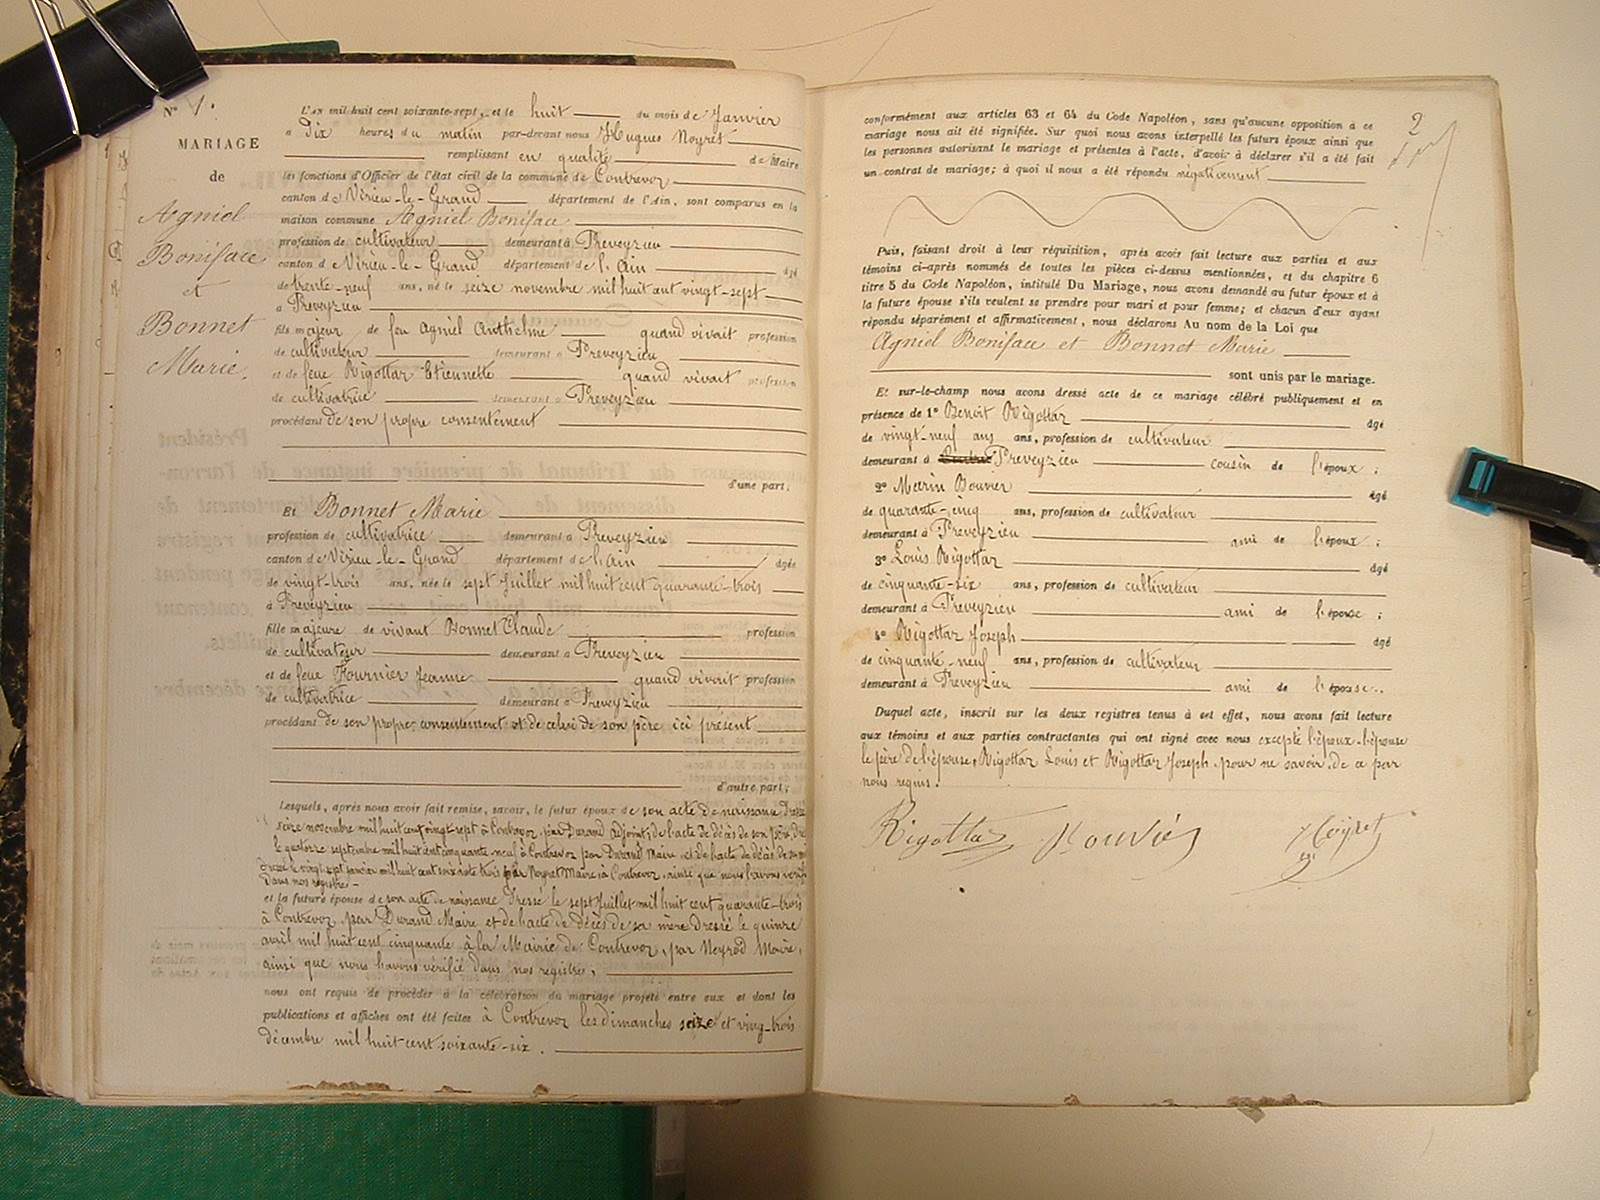 N° 1.
MARIAGE
de
Agniel
Boniface
et
Bonnet
Marie.
L'an mil-huit cent soixante-sept, et le huit du mois de Janvier
à Dix heures du matin par-devant nous Hugues Noyret
remplissant en qualité de Maire
les fonctions d'Officier de l'état civil de la commune de Contrevoz
canton de Virieu-le-Grand département de l'Ain, sont comparus en la
maison commune Agniel Boniface
profession de cultivateur demeurant à Preveyzieu
canton de Virieu-le-Grand département de l'Ain âgé
de trente-neuf ans, né le seize novembre mil huit cent vingt-sept
à Preveyzieu
fils majeur de feu Agniel Anthelme quand vivait profession
de cultivateur demeurant à Preveyzieu
et de feue Rigottaz Etiennette quand vivait profession
de cultivatrice demeurant à Preveyzieu
procédant De son propre consentement
d'une part;
Et Bonnet Marie
profession de cultivatrice demeurant à Preveyzieu
canton de Virieu-le-Grand département de l'Ain âgée
de vingt-trois ans, née le sept Juillet mil huit cent quarante-trois
à Preveyzieu
fille majeure de vivant Bonnet Claude profession
de cultivateur demeurant à Preveyzieu
et de feue Fournier Jeanne quand vivait profession
de cultivatrice demeurant à Preveyzieu
procédant de son propre consentement et de celui de son père ici présent
d'autre part;
Lesquels, après nous avoir fait remise, savoir, le futur époux de son acte de naissance Dressé
seize novembre mil huit cent vingt-sept à Contrevoz, par Durand adjoint, de l'acte de décès de son père, dressé
le quatorze septembre mil huit cent cinquante-neuf à Contrevoz par Durand Maire et de l'acte de décès de sa mère
dressé le vingt sept janvier mil huit cent soixante trois par Noyret Maire, à Contrevoz, ainsi que nous l'avons vérifié
dans nos registres
et la future épouse de son acte de naissance Dressé le sept Juillet mil huit cent quarante-trois
à Contrevoz, par Durand Maire et de l'acte de décès de sa mère Dressé le quinze
avril mil huit cent cinquante à la Mairie de Contrevoz, par Neyrod Maire,
ainsi que nous l'avons vérifié dans nos registres,
nous ont requis de procéder à la célébration du mariage projeté entre eux et dont les
publications et affiches ont été faites à Contrevoz les dimanches seize et vingt-trois
décembre mil huit cent soixante-six.
2
conformément aux articles 63 et 64 du Code Napoléon, sans qu'aucune opposition à ce
mariage nous ait été signifiée. Sur quoi nous avons interpellé les futurs époux ainsi que
les personnes autorisant le mariage et présentes à l'acte, d'avoir à déclarer s'il a été fait
un contrat de mariage; à quoi il nous a été répondu négativement
Puis, faisant droit à leur réquisition, après avoir fait lecture aux parties et aux
témoins ci-après nommés de toutes les pièces ci-dessus mentionnées, et du chapitre 6
titre 5 du Code Napoléon, intitulé Du Mariage, nous avons demandé au futur époux et à
la future épouse s'ils veulent se prendre pour mari et pour femme; et chacun d'eux ayant
répondu séparément et affirmativement, nous déclarons Au nom de la Loi que
Agniel Boniface et Bonnet Marie
sont unis par le mariage.
Et sur-le-champ nous avons dressé acte de ce mariage célébré publiquement et en
présence de 1° Benoit Rigottaz âgé
de vingt-neuf ans ans, profession de cultivateur
demeurant à Preveyzieu cousin de l'époux;
2° Marin Bouvier âgé
de quarante-cinq ans, profession de cultivateur
demeurant à Preveyzieu ami de l'époux;
3° Louis Rigottaz âgé
de cinquante-six ans, profession de cultivateur
demeurant à Preveyzieu ami de l'épouse;
4° Rigottaz Joseph âgé
de cinquante-neuf ans, profession de cultivateur
demeurant à Preveyzieu ami de l'épouse.
Duquel acte, inscrit sur les deux registres tenus à cet effet, nous avons fait lecture
aux témoins et aux parties contractantes qui ont signé avec nous excepté l'époux-l'épouse
le père de l'épouse, Rigottaz Louis et Rigottaz Joseph pour ne savoir de ce par
nous requis.
Rigottaz Bouvier Noyret